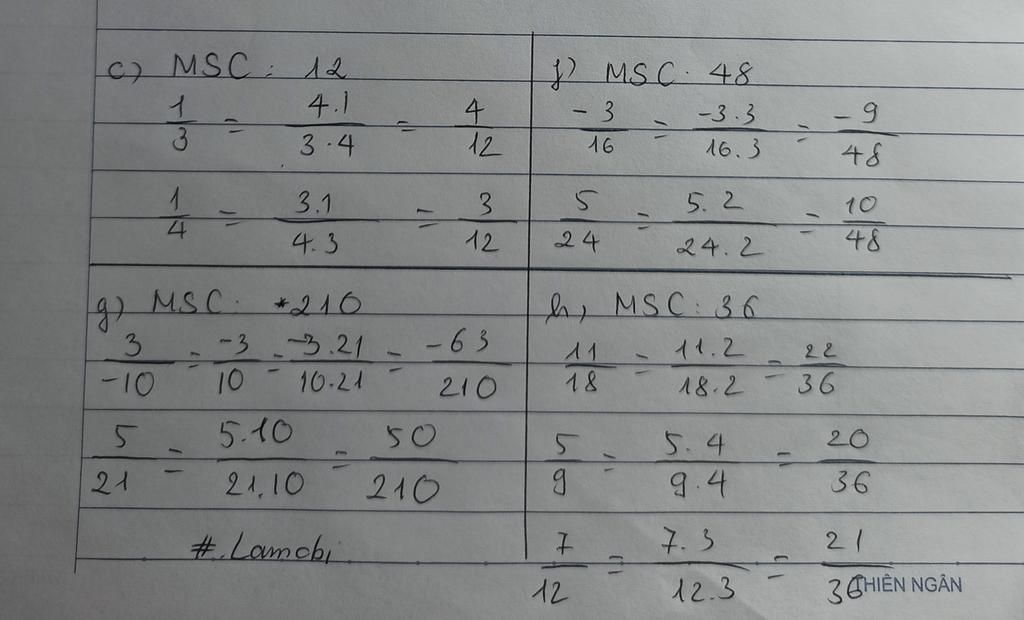 c) MSC: 12
1/3 = 4.1/3.4 = 4/12
1/4 = 3.1/4.3 = 3/12
f) MSC: 48
-3/16 = -3.3/16.3 = -9/48
5/24 = 5.2/24.2 = 10/48
g) MSC: 210
3/-10 = -3/10 = -3.21/10.21 = -63/210
5/21 = 5.10/21.10 = 50/210
#.Lamobi
h, MSC: 36
11/18 = 11.2/18.2 = 22/36
5/9 = 5.4/9.4 = 20/36
7/12 = 7.3/12.3 = 21/36
THIÊN NGÂN